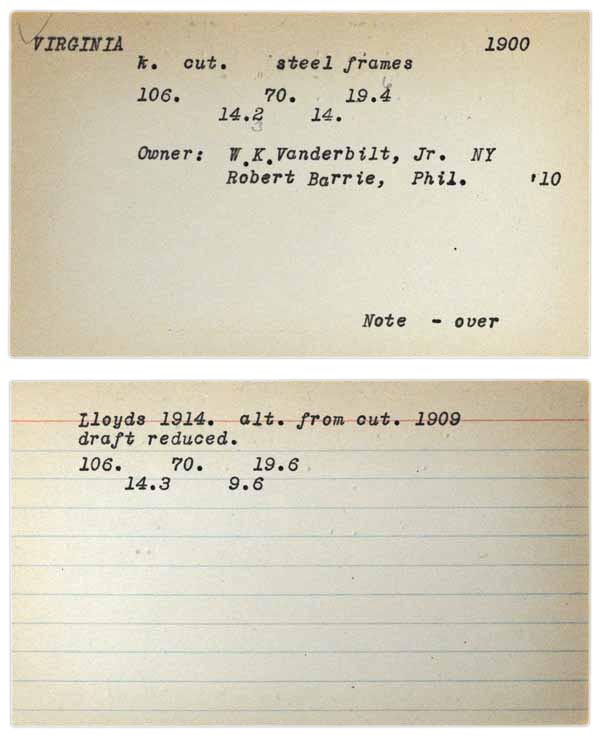 VIRGINIA 1900
k. cut. steel frames
106. 70. 19.4
14.2 14.
Owner: W.K.Vanderbilt, Jr. NY
Robert Barrie, Phil. '10
Note - over
Lloyds 1914. alt. from cut. 1909
draft reduced.
106. 70. 19.6
14.3 9.6